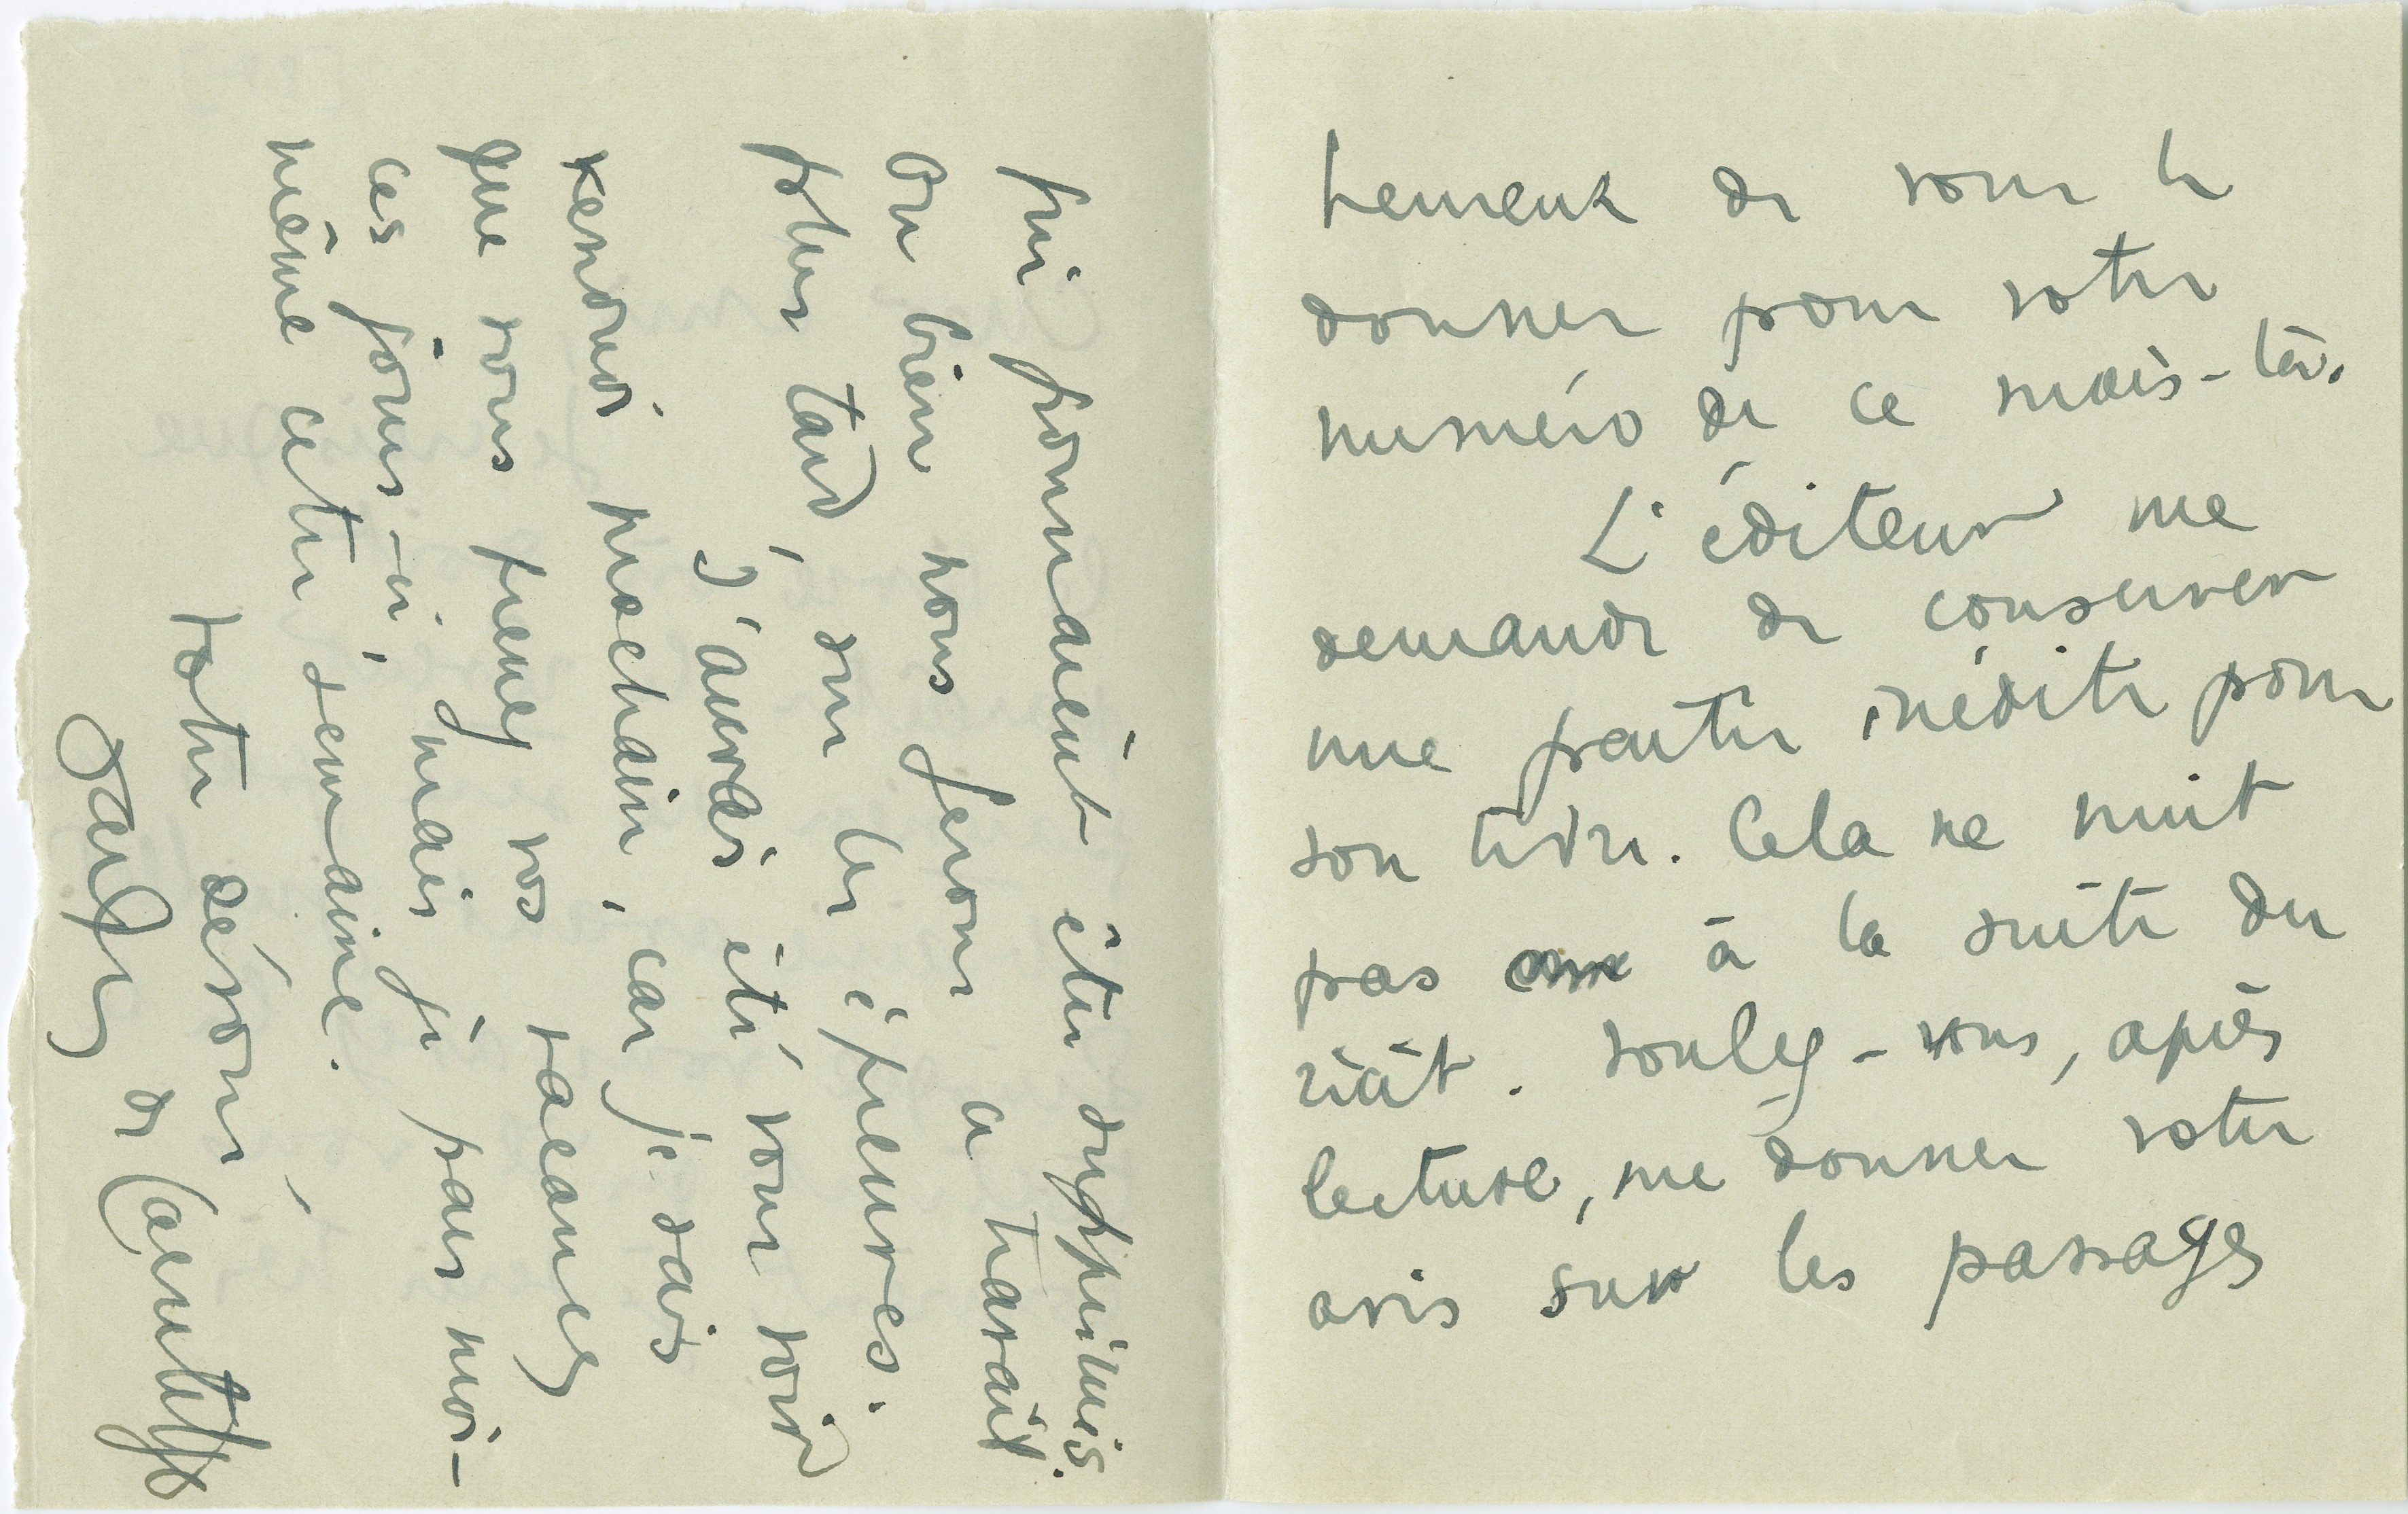 heureux de vous le
donner pour votre
numéro de ce mois-là.
L'éditeur me
demande de conserver
une partie inédite pour
son livre. Cela ne nuit
pas à la suite du
récit. Voulez-vous, après
lecture, me donner votre
avis sur les passages
qui pourraient être supprimés.
Ou bien nous ferons ce travail
plus tard, sur les épreuves.
J'aurais été vous voir
vendredi prochain, car je sais
que vous prenez vos vacances
ces jours-ci, mais je pars moi-
même cette semaine.
Votre dévoué,
Daufrey de Carmtuff